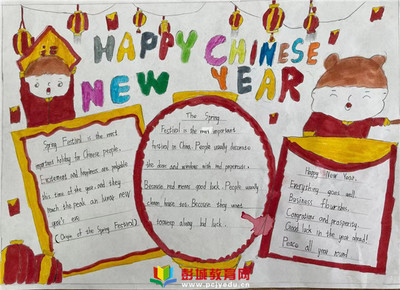 HAPPY CHINESE
NEW YEAR
Spring Festival is the most
important holiday for Chinese people.
Excitement and happiness are palpable
this time of the year, and they
reach the peak on lunar new
year's eve.
(Origin of the Spring Festival)
The Spring
Festival is the most important
festival in China. People usually decorate
the door and window with red papercuts.
Because red means good luck. People usually
clean house too. Because they want
to sweep away bad luck.
Happy New Year,
Everything goes well.
Business flourishes,
Congratulation and prosperity.
Good luck in the year ahead!
Peace all year round
彭城教育网
www.pcjyedu.cn